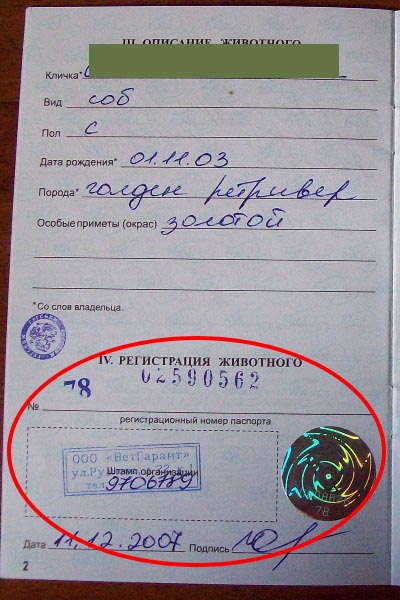 III. ОПИСАНИЕ ЖИВОТНОГО
Кличка*
Вид соб
Пол с
Дата рождения* 01.11.03
Порода* голден ретривер
Особые приметы (окрас) золотой
*Со слов владельца.
IV. РЕГИСТРАЦИЯ ЖИВОТНОГО
№ 78 02590562
регистрационный номер паспорта
ООО «ВетГарант»
Штамп организации
тел. 9706789
Дата 11.12.2007 Подпись
78
2